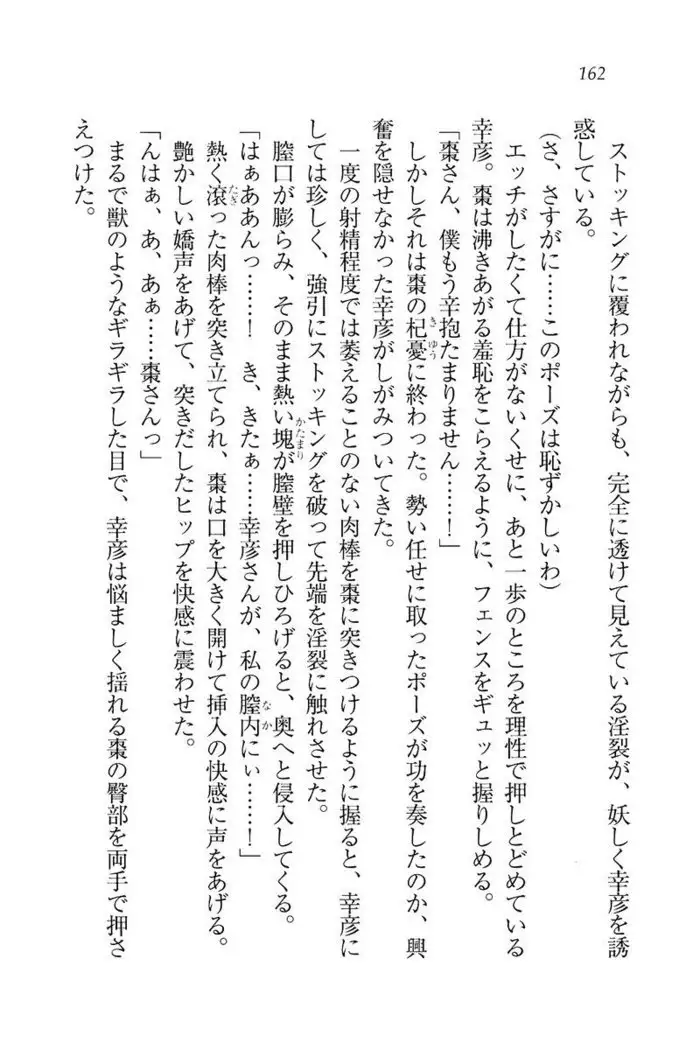 162
ストッキングに覆われながらも、完全に透けて見えている淫裂が、妖しく幸彦を誘
惑している。
(さ、さすがに……このポーズは恥ずかしいわ)
エッチがしたくて仕方がないくせに、あと一歩のところを理性で押しとどめている
幸彦。棗は沸きあがる羞恥をこらえるように、フェンスをギュッと握りしめる。
「棗さん、僕もう辛抱たまりません……!」
しかしそれは棗の杞憂に終わった。勢い任せに取ったポーズが功を奏したのか、興
奮を隠せなかった幸彦がしがみついてきた。
一度の射精程度では萎えることのない肉棒を棗に突きつけるように握ると、幸彦に
しては珍しく、強引にストッキングを破って先端を淫裂に触れさせた。
膣口が膨らみ、そのまま熱い塊が膣壁を押しひろげると、奥へと侵入してくる。
「はぁああんっ……! き、きたぁ……幸彦さんが、私の膣内にぃ……!」
熱く滾った肉棒を突き立てられ、棗は口を大きく開けて挿入の快感に声をあげる。
艶かしい嬌声をあげて、突きだしたヒップを快感に震わせた。
「んはぁ、あ、あぁ……棗さんっ」
まるで獣のようなギラギラした目で、幸彦は悩ましく揺れる棗の臀部を両手で押さ
えつけた。